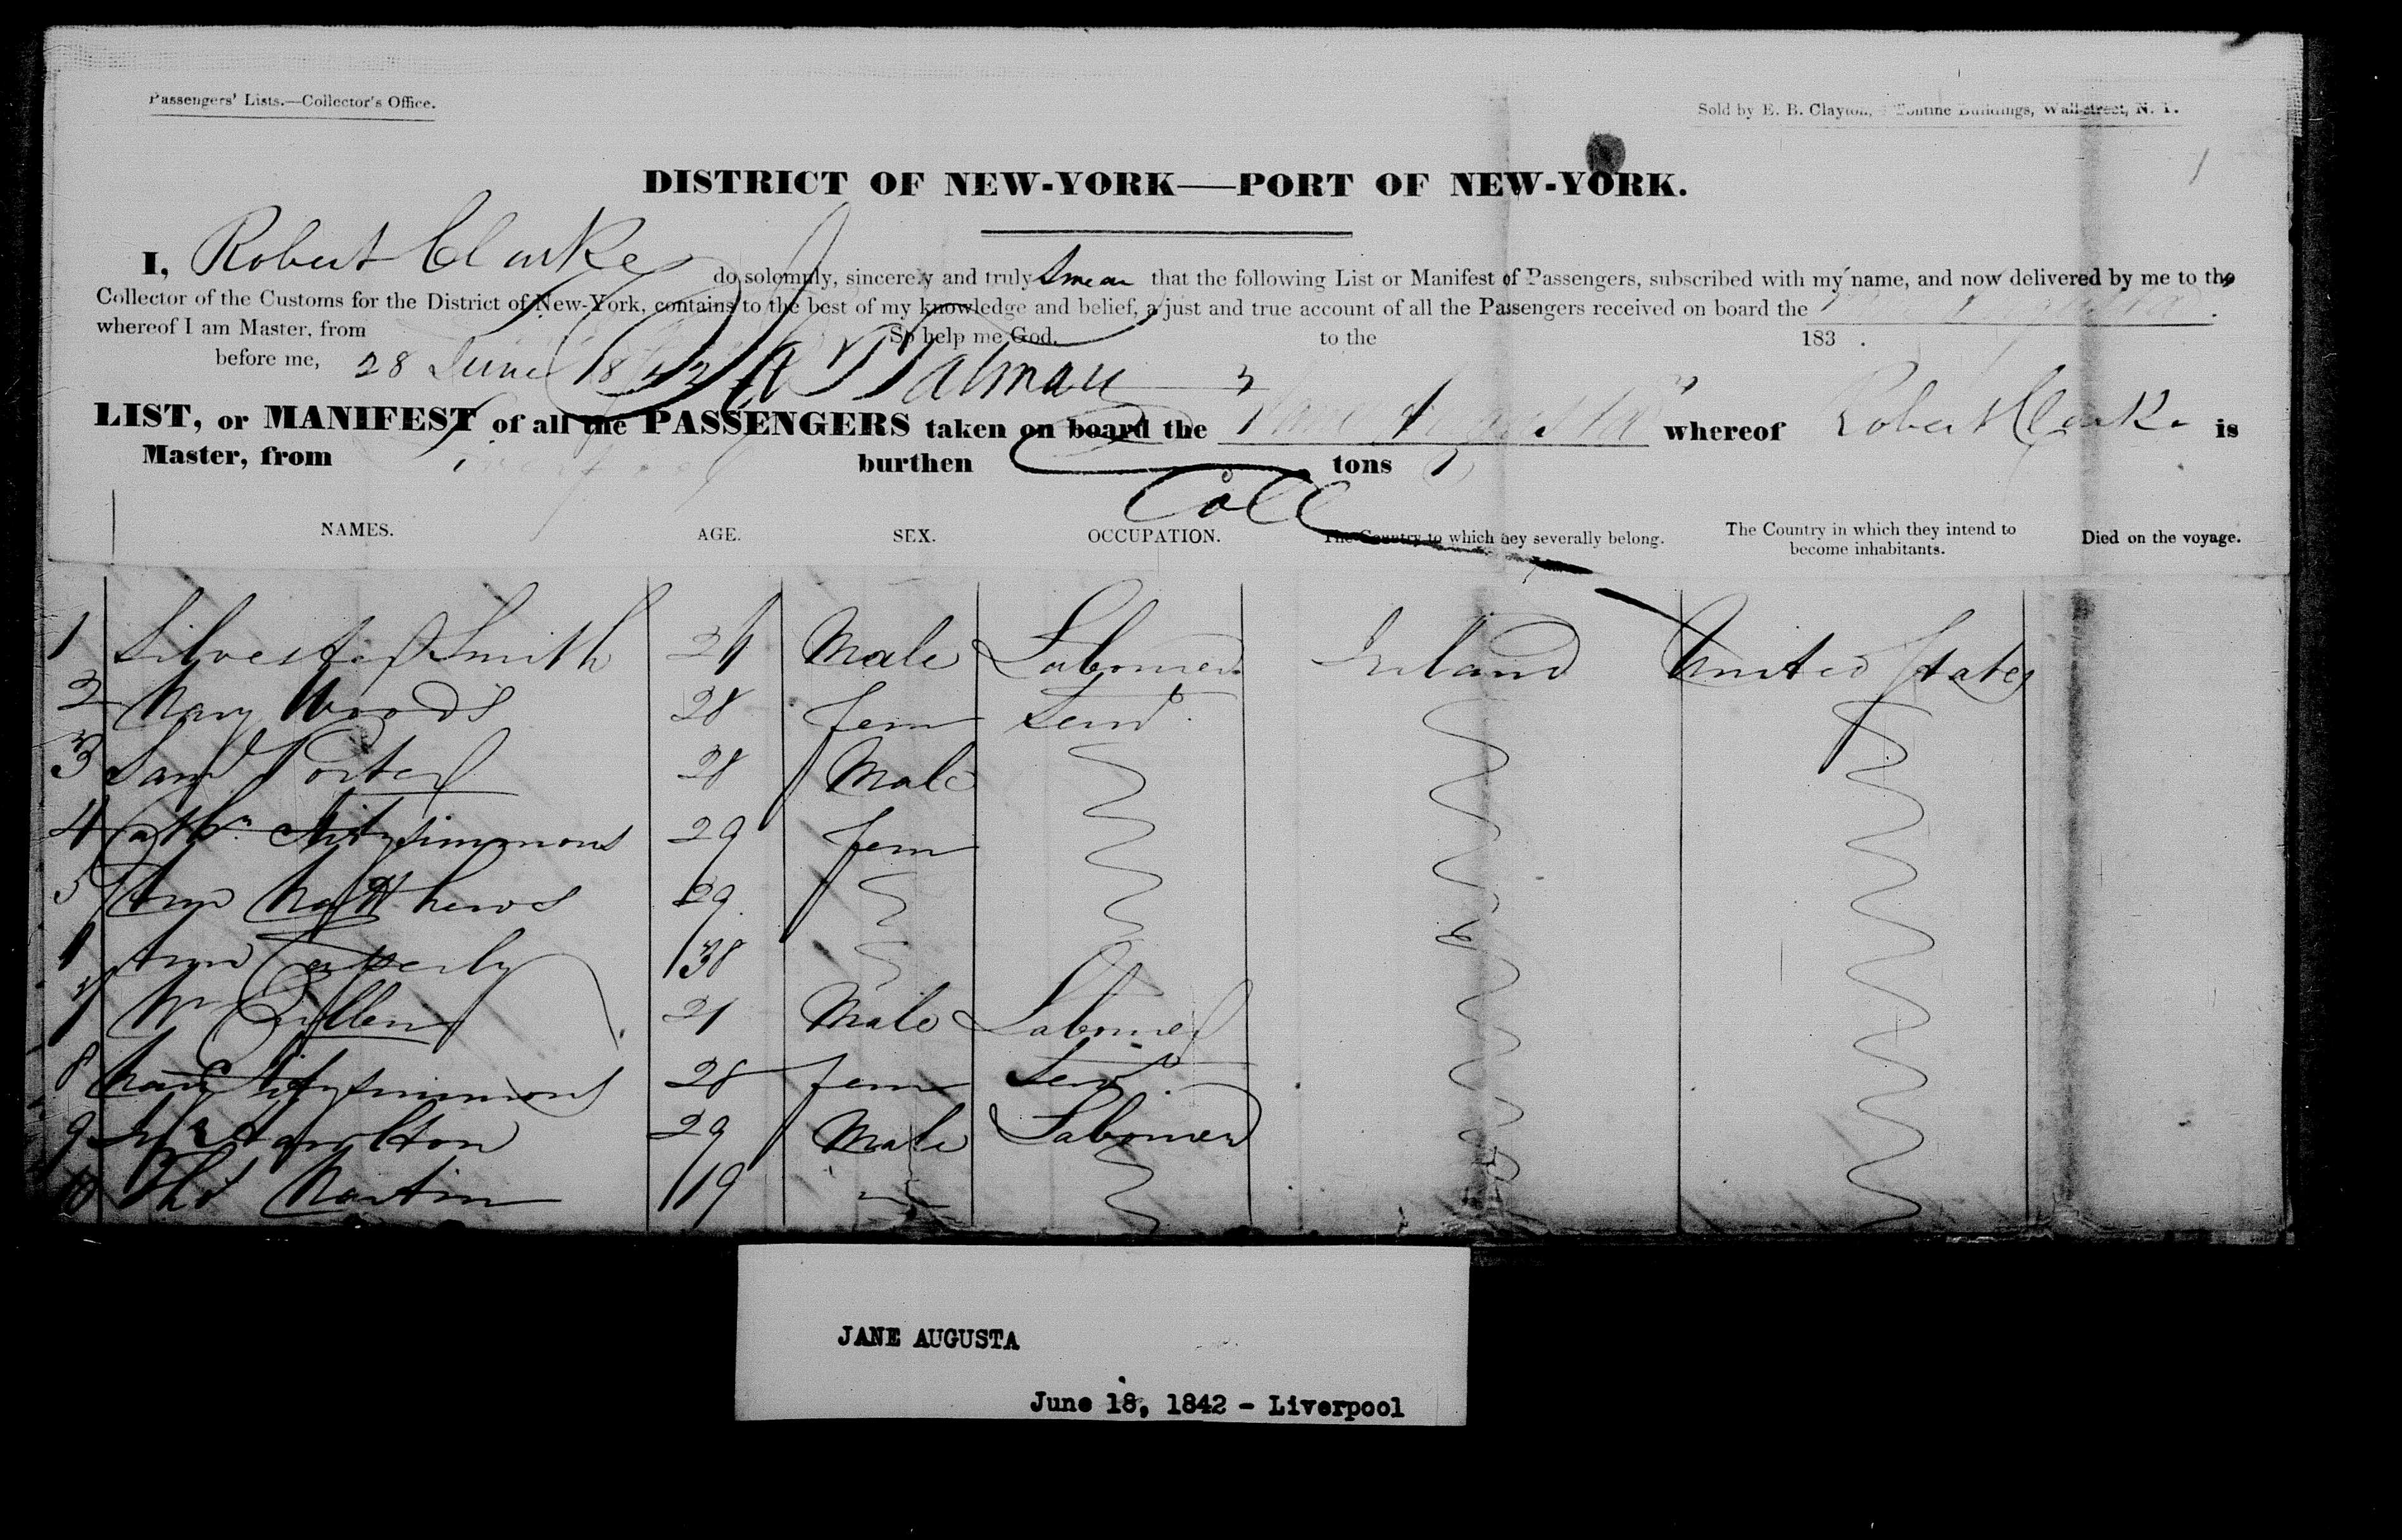 Passengers' Lists.—Collector's Office.
Sold by E. B. Clayton, Tontine Buildings, Wall-street, N. Y.
1
DISTRICT OF NEW-YORK—PORT OF NEW-YORK.
I, Robert Clarke do solemnly, sincerely and truly Swear that the following List or Manifest of Passengers, subscribed with my name, and now delivered by me to the
Collector of the Customs for the District of New-York, contains to the best of my knowledge and belief, a just and true account of all the Passengers received on board the Jane Augusta
whereof I am Master, from So help me God. to the 183 .
before me, 28 June 1842
LIST, or MANIFEST of all the PASSENGERS taken on board the Jane Augusta whereof Robert Clarke is
Master, from Liverpool burthen tons
Coll
NAMES. AGE. SEX. OCCUPATION. The Country to which they severally belong. The Country in which they intend to become inhabitants. Died on the voyage.
1 Silvester Smith 26 Male Labourer Ireland United States
2 Mary Woods 28 Fem Servt
3 Saml Porter 28 Male
4 Cathn Fitzsimmons 29 Fem
5 Ann Matthews 29
Ann 38
7 Wm Cullen 21 Male Labourer
8 Mary Fitzsimmons 28 Fem Servt
9 Hamilton 29 Male Labourer
10 Thos Martin 19
JANE AUGUSTA
June 18, 1842 - Liverpool